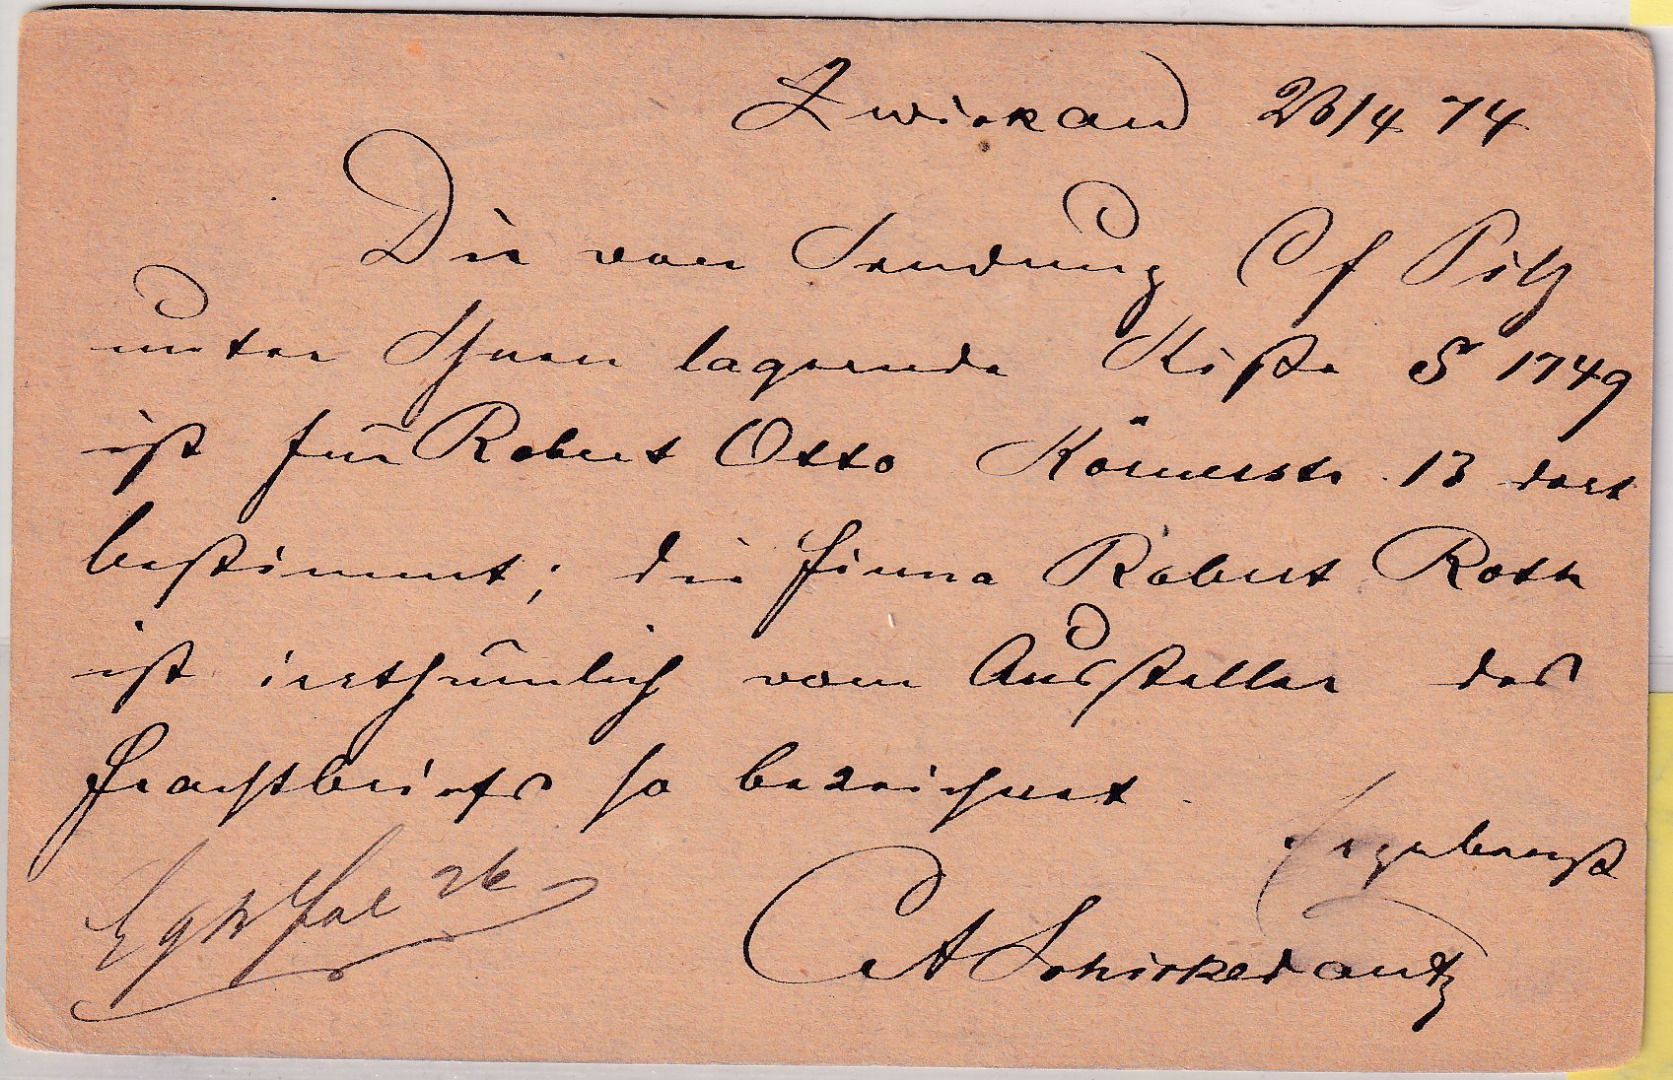 Zwickau 26/4 74
Die von Sendung C f Pilz
unter Ihnen lagernde Kiste S 1749
ist für Robert Otto Körnerstr. 13 dort
bestimmt; die Firma Robert Roth
ist irrthümlich vom Aussteller des
Frachtbriefs so bezeichnet.
Ergebenst
C A Schickedantz
26